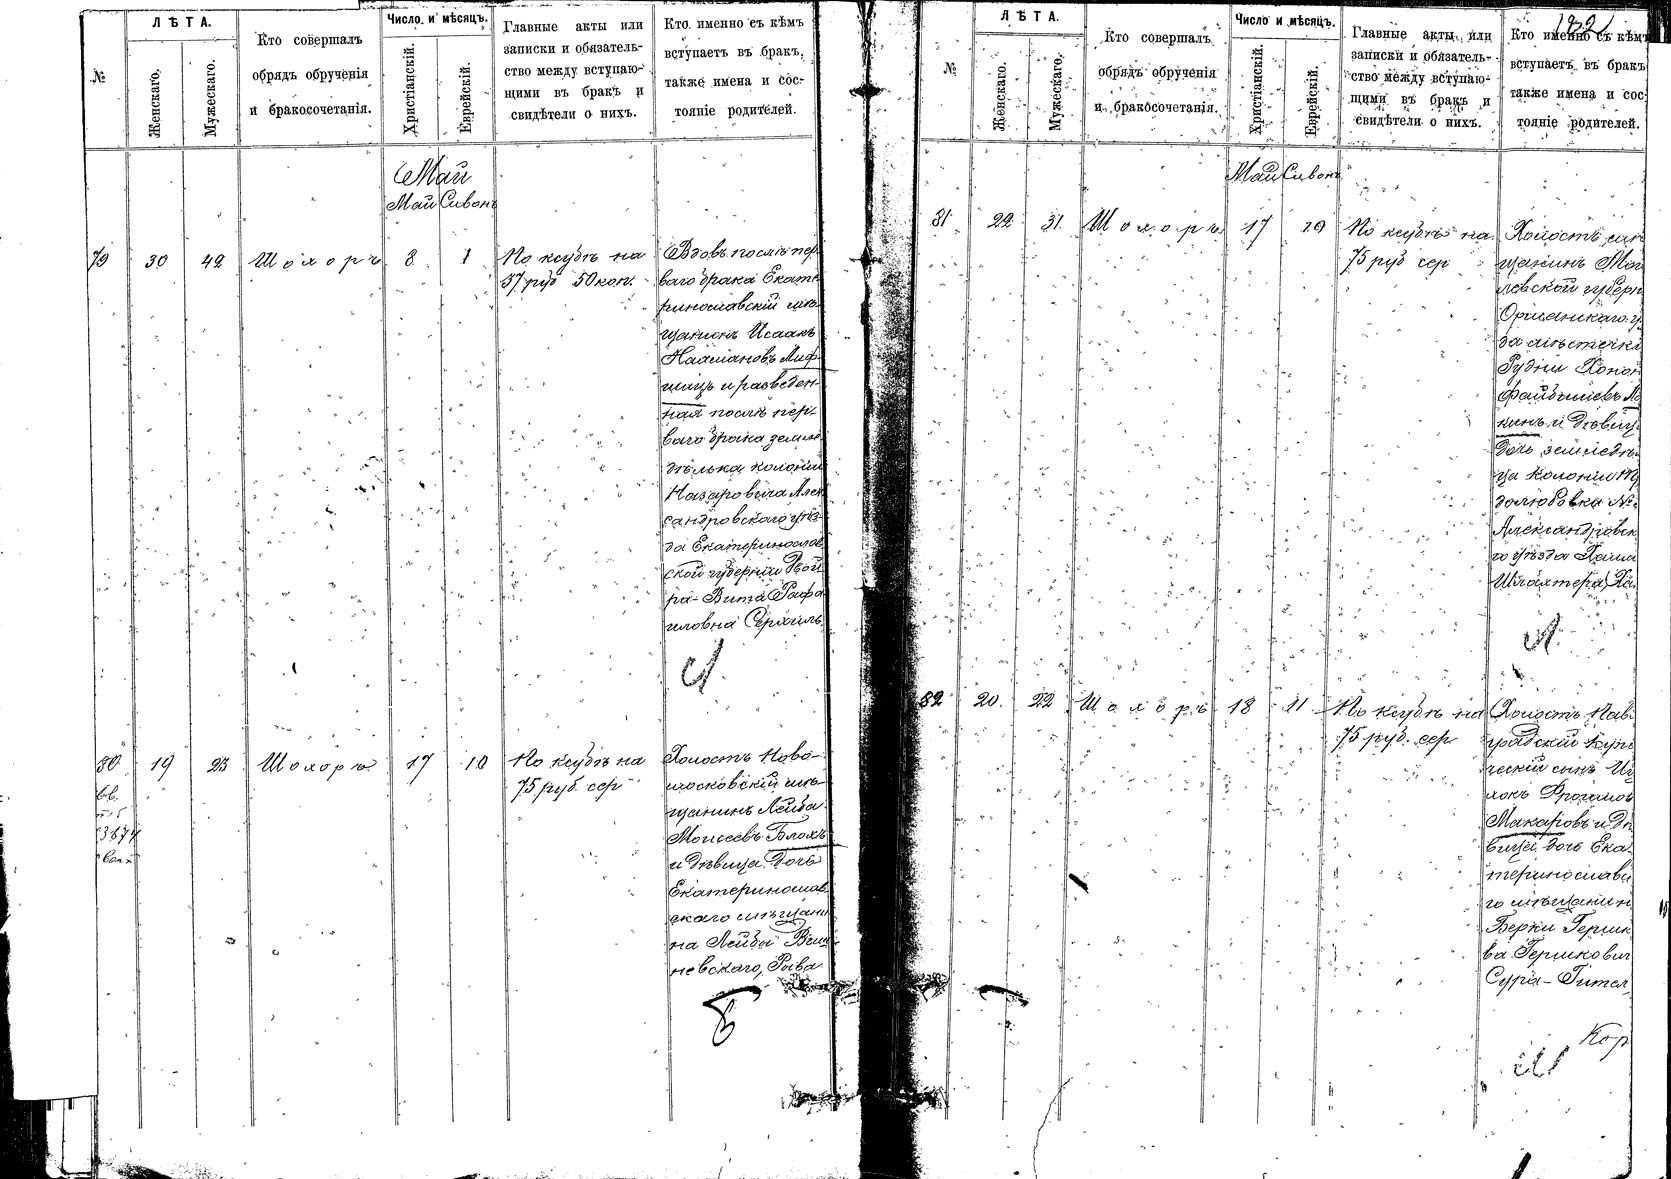 ЛѢТА.
Число и мѣсяцъ.
№
Женскаго.
Мужескаго.
Кто совершалъ
обрядъ обрученія
и бракосочетанія.
Христіанскій.
Еврейскій.
Главные акты или
записки и обязатель-
ство между вступаю-
щими въ бракъ и
свидѣтели о нихъ.
Кто именно съ кѣмъ
вступаетъ въ бракъ,
также имена и сос-
тояніе родителей.
Май
Май Сивонъ
79 30 42 Шохоръ 8 1
По ксубѣ на
37 руб 50 коп.
Вдовъ послѣ пер
ваго брака Екате
ринославскій мѣ
щанинъ Исаакъ
Нахмановъ Лиф
шицъ и разведен-
ная послѣ пер
ваго брака земле
дѣлька колоніи
Назаровича Алек
сандровскаго уѣз
да Екатеринослав
ской губерніи Двой
ра-Вита Рафа
иловна
80 19 23 Шохоръ 17 10
По ксубѣ на
75 руб. сер
Холостъ Ново-
московскій мѣ-
щанинъ Лейба
Моисеевъ Блохъ
и дѣвица дочь
Екатеринослав
скаго мѣщани
на Лейбы Виш
невскаго, Рыва
ЛѢТА.
Число и мѣсяцъ.
№
Женскаго.
Мужескаго.
Кто совершалъ
обрядъ обрученія
и бракосочетанія.
Христіанскій.
Еврейскій.
Главные акты или
записки и обязатель-
ство между вступаю-
щими въ бракъ и
свидѣтели о нихъ.
Кто именно съ кѣмъ
вступаетъ въ бракъ
также имена и сос-
тояніе родителей.
Май Сивонъ
81 22 31 Шохоръ 17 10
По ксубѣ на
75 руб сер
Холостъ мѣ
щанинъ Моги
левской губерн
Оршанскаго у
да мѣстечка
Рудни Хонон
Файбишевъ
кинъ и дѣвиц
дочь земледѣ
ца колоніи
долюбовка №
Александровск
го уѣзда Хаима
Шлахтера, Ха
82 20 22 Шохоръ 18 11
По ксубѣ на
75 руб. сер
Холостъ Пав
градскій купе
ческій сынъ Иц
хокъ
Макаровъ и дѣ
вица дочь Ека
теринославс
го мѣщанин
Берки Гершк
ва Гершкович
Сура-Гител
Кор